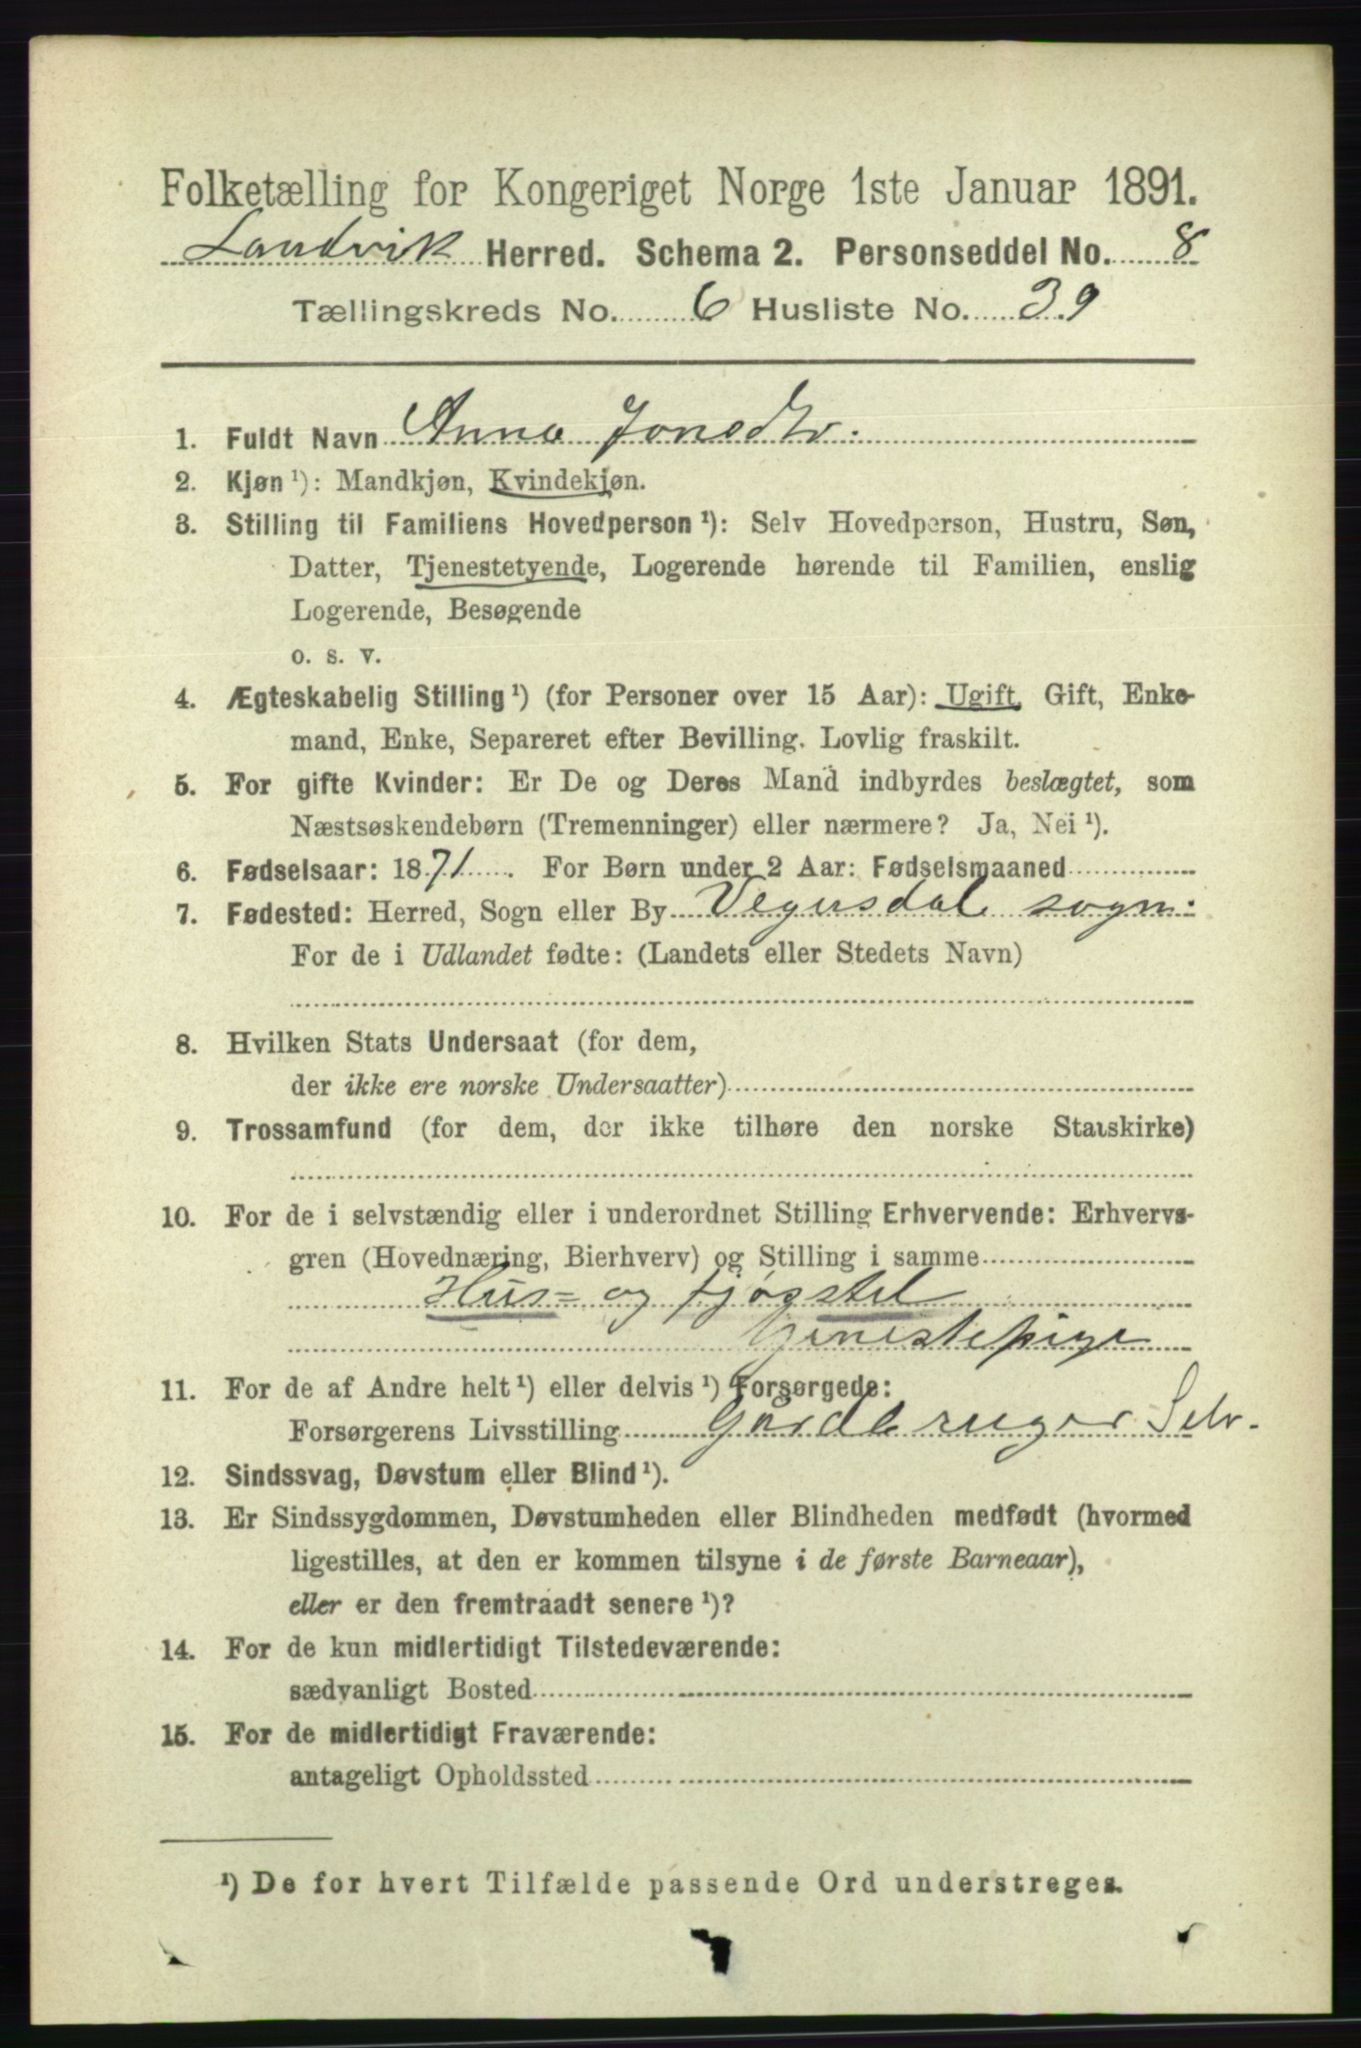 Folketælling for Kongeriget Norge 1ste Januar 1891.
Landvik Herred. Schema 2. Personseddel No. 8
Tællingskreds No. 6 Husliste No. 39
1. Fuldt Navn Anna Jonsdtr.
2. Kjøn ¹): Mandkjøn, Kvindekjøn.
3. Stilling til Familiens Hovedperson ¹): Selv Hovedperson, Hustru, Søn,
Datter, Tjenestetyende, Logerende hørende til Familien, enslig
Logerende, Besøgende
o. s. v.
4. Ægteskabelig Stilling ¹) (for Personer over 15 Aar): Ugift, Gift, Enke-
mand, Enke, Separeret efter Bevilling. Lovlig fraskilt.
5. For gifte Kvinder: Er De og Deres Mand indbyrdes beslægtet, som
Næstsøskendebørn (Tremenninger) eller nærmere? Ja, Nei ¹).
6. Fødselsaar: 1871. For Børn under 2 Aar: Fødselsmaaned
7. Fødested: Herred, Sogn eller By Vegusdal sogn.
For de i Udlandet fødte: (Landets eller Stedets Navn)
8. Hvilken Stats Undersaat (for dem,
der ikke ere norske Undersaatter)
9. Trossamfund (for dem, der ikke tilhøre den norske Statskirke)
10. For de i selvstændig eller i underordnet Stilling Erhvervende: Erhvervs-
gren (Hovednæring, Bierhverv) og Stilling i samme
Hus- og fjøgstel
tjenestepige
11. For de af Andre helt ¹) eller delvis ¹) Forsørgede:
Forsørgerens Livsstilling Gårdbruger Selv.
12. Sindssvag, Døvstum eller Blind ¹).
13. Er Sindssygdommen, Døvstumheden eller Blindheden medfødt (hvormed
ligestilles, at den er kommen tilsyne i de første Barneaar),
eller er den fremtraadt senere ¹)?
14. For de kun midlertidigt Tilstedeværende:
sædvanligt Bosted
15. For de midlertidigt Fraværende:
antageligt Opholdssted
¹) De for hvert Tilfælde passende Ord understreges.